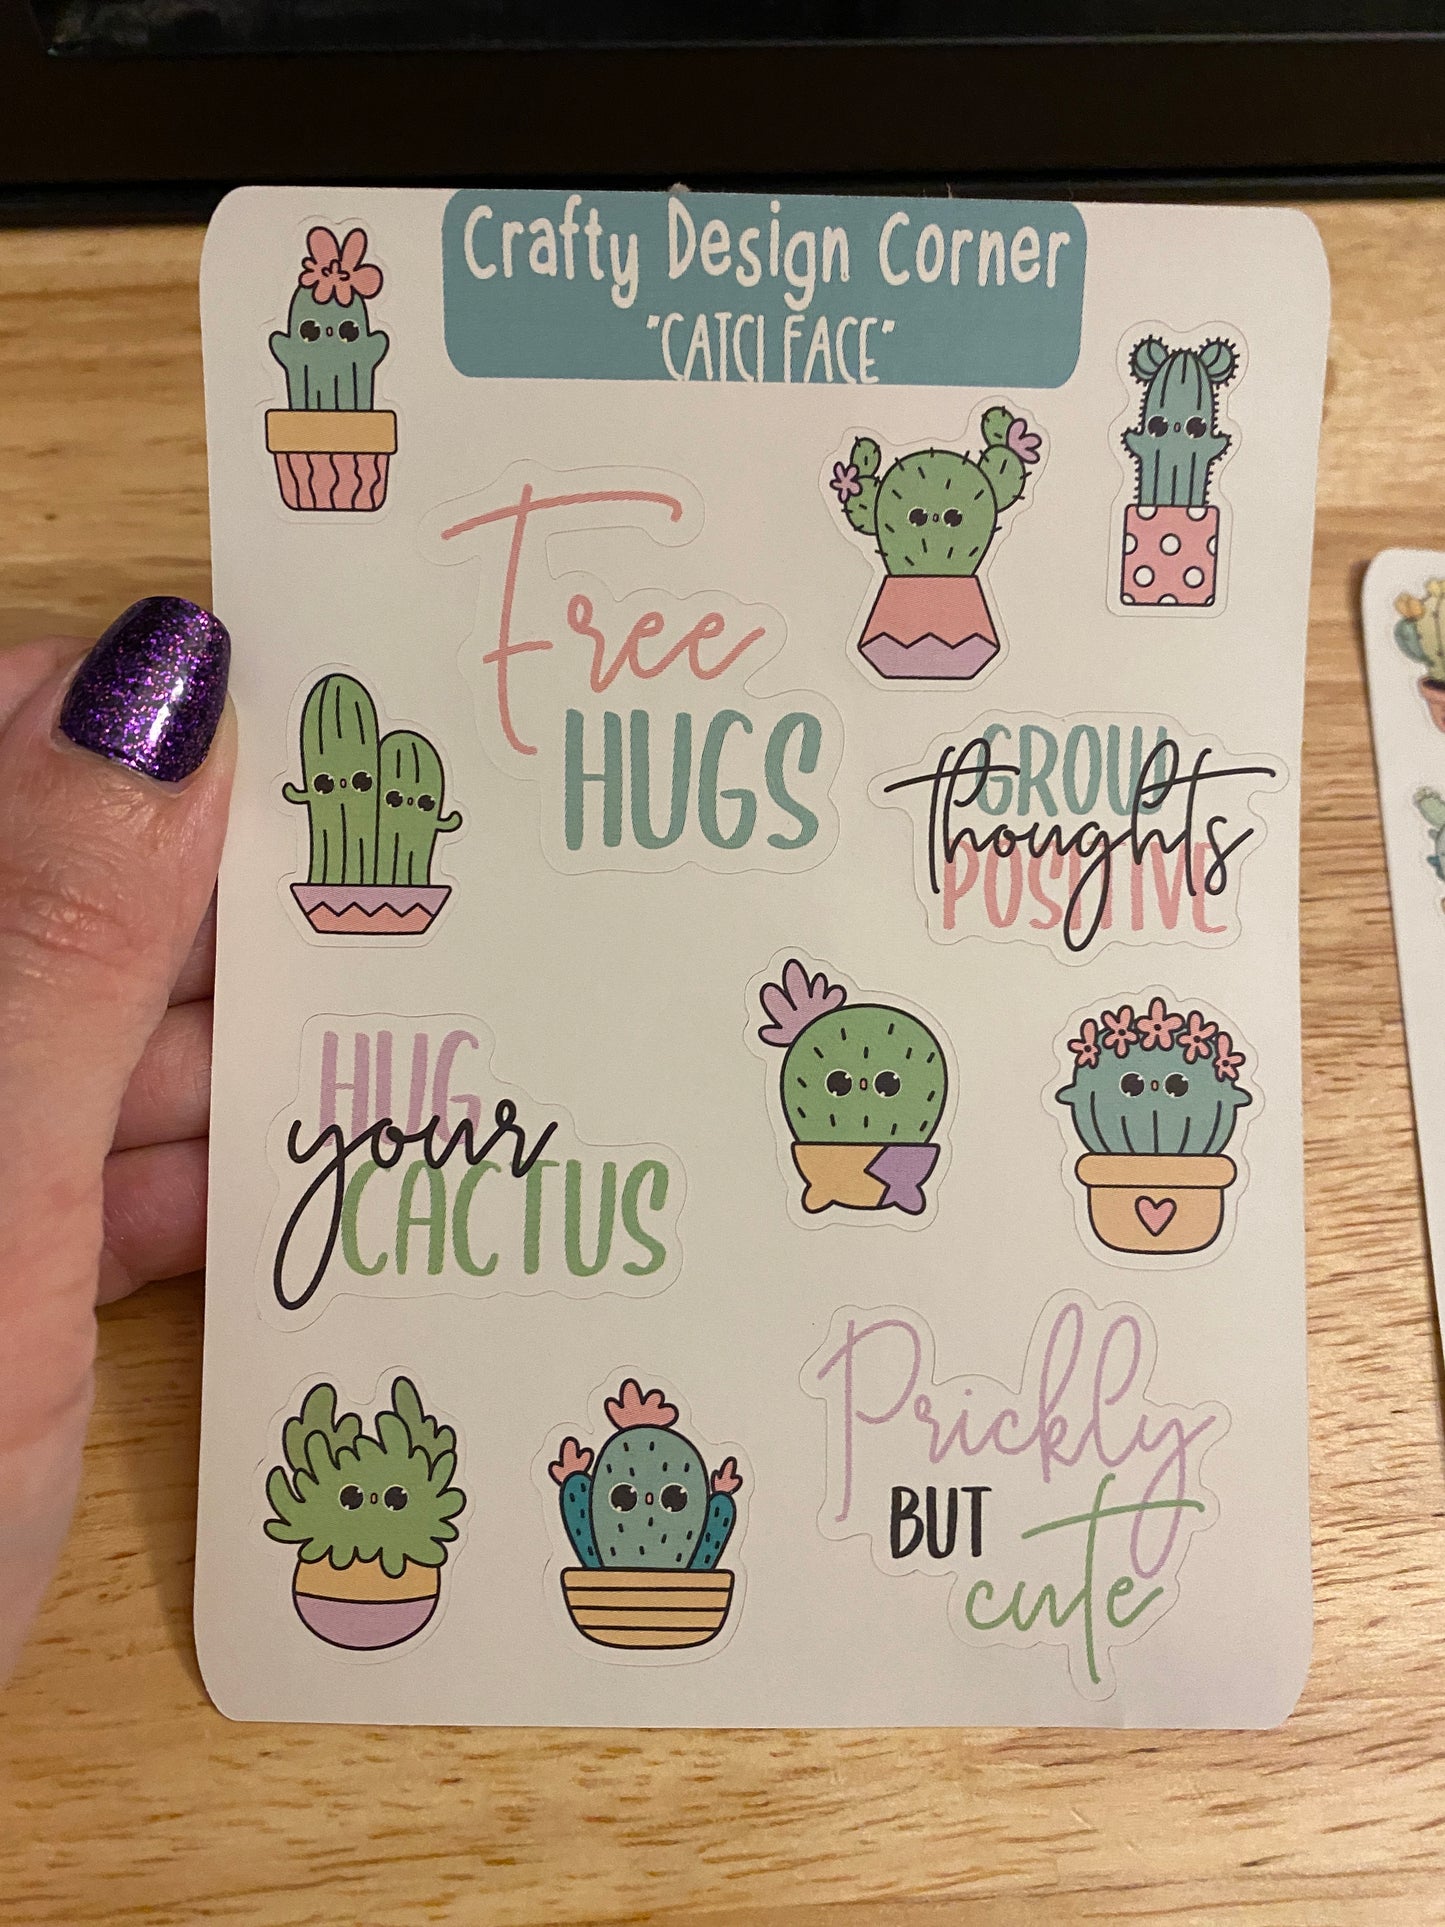 Crafty Design Corner
"CATCI FACE"
Free
HUGS
GROW
thoughts
POSITIVE
HUG
your
CACTUS
Prickly
BUT
cute